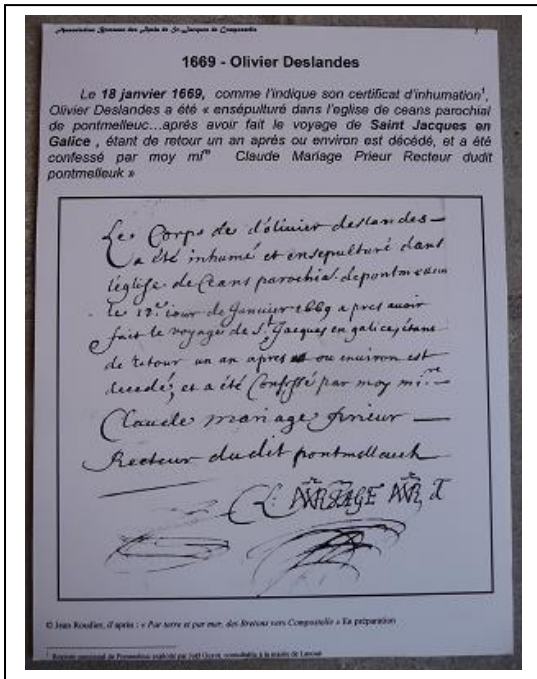 Association Bretonne des Amis de St Jacques de Compostelle
1669 - Olivier Deslandes
Le 18 janvier 1669, comme l'indique son certificat d'inhumation¹,
Olivier Deslandes a été « ensépulturé dans l'eglise de ceans parochial
de pontmelleuc...après avoir fait le voyage de Saint Jacques en
Galice , étant de retour un an aprés ou environ est décédé, et a été
confessé par moy mʳᵉ Claude Mariage Prieur Recteur dudit
pontmelleuk »
Le Corps de d'olivier deslandes
a été inhumé et ensepulturé dans
l'église de Ceans parochial de
le 18e iour de Janvier 1669 apres avoir
fait le voyage de St Jacques en galice, étant
de retour un an apres ou environ est
decedé, et a été Confessé par moy
Claude mariage prieur
Recteur dudit
C: MARIAGE
© Jean Roudier, d'après : « Par terre et par mer, des Bretons vers Compostelle » En préparation